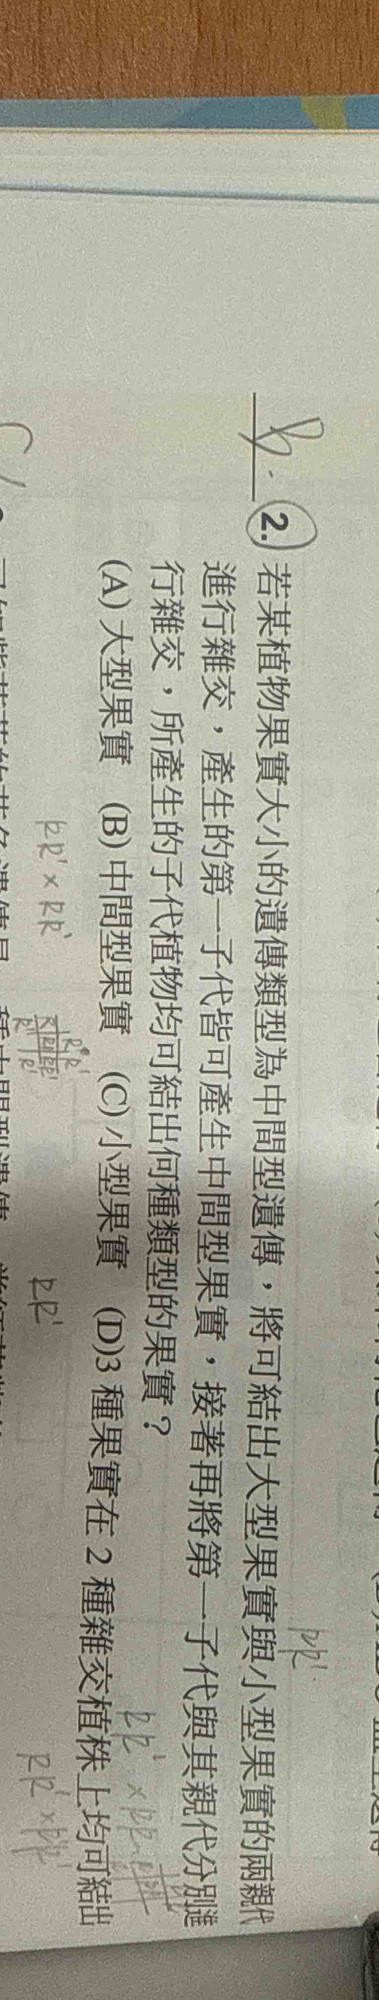 B
2. 若某植物果實大小的遺傳類型為中間型遺傳，將可結出大型果實與小型果實的兩親代
進行雜交，產生的第一子代皆可產生中間型果實，接著再將第一子代與其親代分別進
行雜交，所產生的子代植物均可結出何種類型的果實？
(A)大型果實 (B)中間型果實 (C)小型果實 (D)3種果實在2種雜交植株上均可結出
RR'
RR' × RR'
RR'
RR' × RR
RR' × R'R'